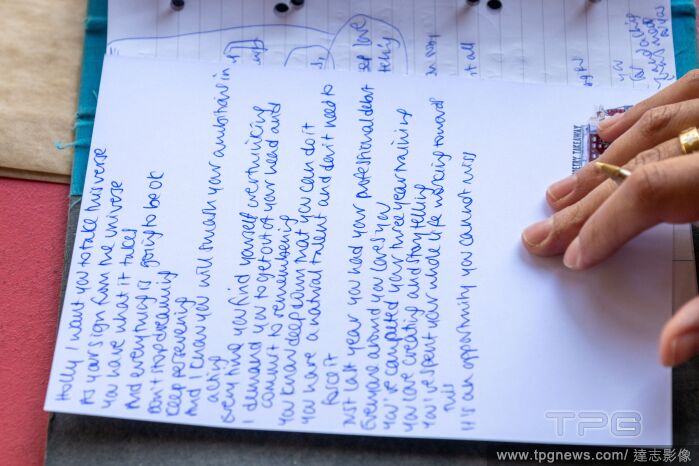 Holly I want you to take this verse
As your sign from the universe
You have what it takes
And everything is going to be ok
Don't stop dreaming
Keep persevering
And I know you will smash your ambitions in
acting
Every time you find yourself overthinking
I demand you to get out of your head and
commit to remembering
You know deep down that you can do it
You have a natural talent and don't need to
force it
Just last year you had your professional debut
Everyone around you loves you
You've completed your three year training
You love creating and storytelling
You've spent your whole life working towards
this
It is an opportunity you cannot miss
love
it all
you
TPG
www.tpgnews.com/ 達志影像